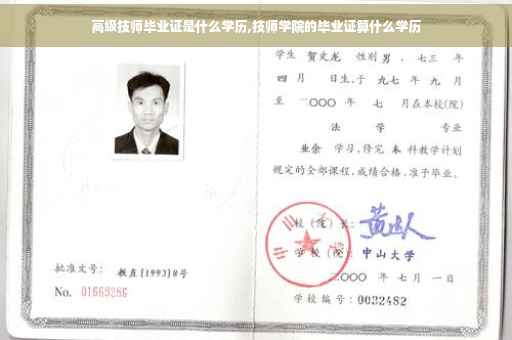 高级技师毕业证是什么学历,技师学院的毕业证算什么学历
学生 贺文龙 性别 男 、七三 年
四 月 日生,于 九七 年 九 月
至 二〇〇〇 年 七 月在本校(院)
法 学 专业
业余 学习,修完 本 科教学计划
规定的全部课程,成绩合格,准予毕业。
校(院)长:
学 校(院): 中山大学
二〇〇〇 年 七 月 一 日
批准文号: 教直[1993]8号
No. 01669286
学校编号: 0032482